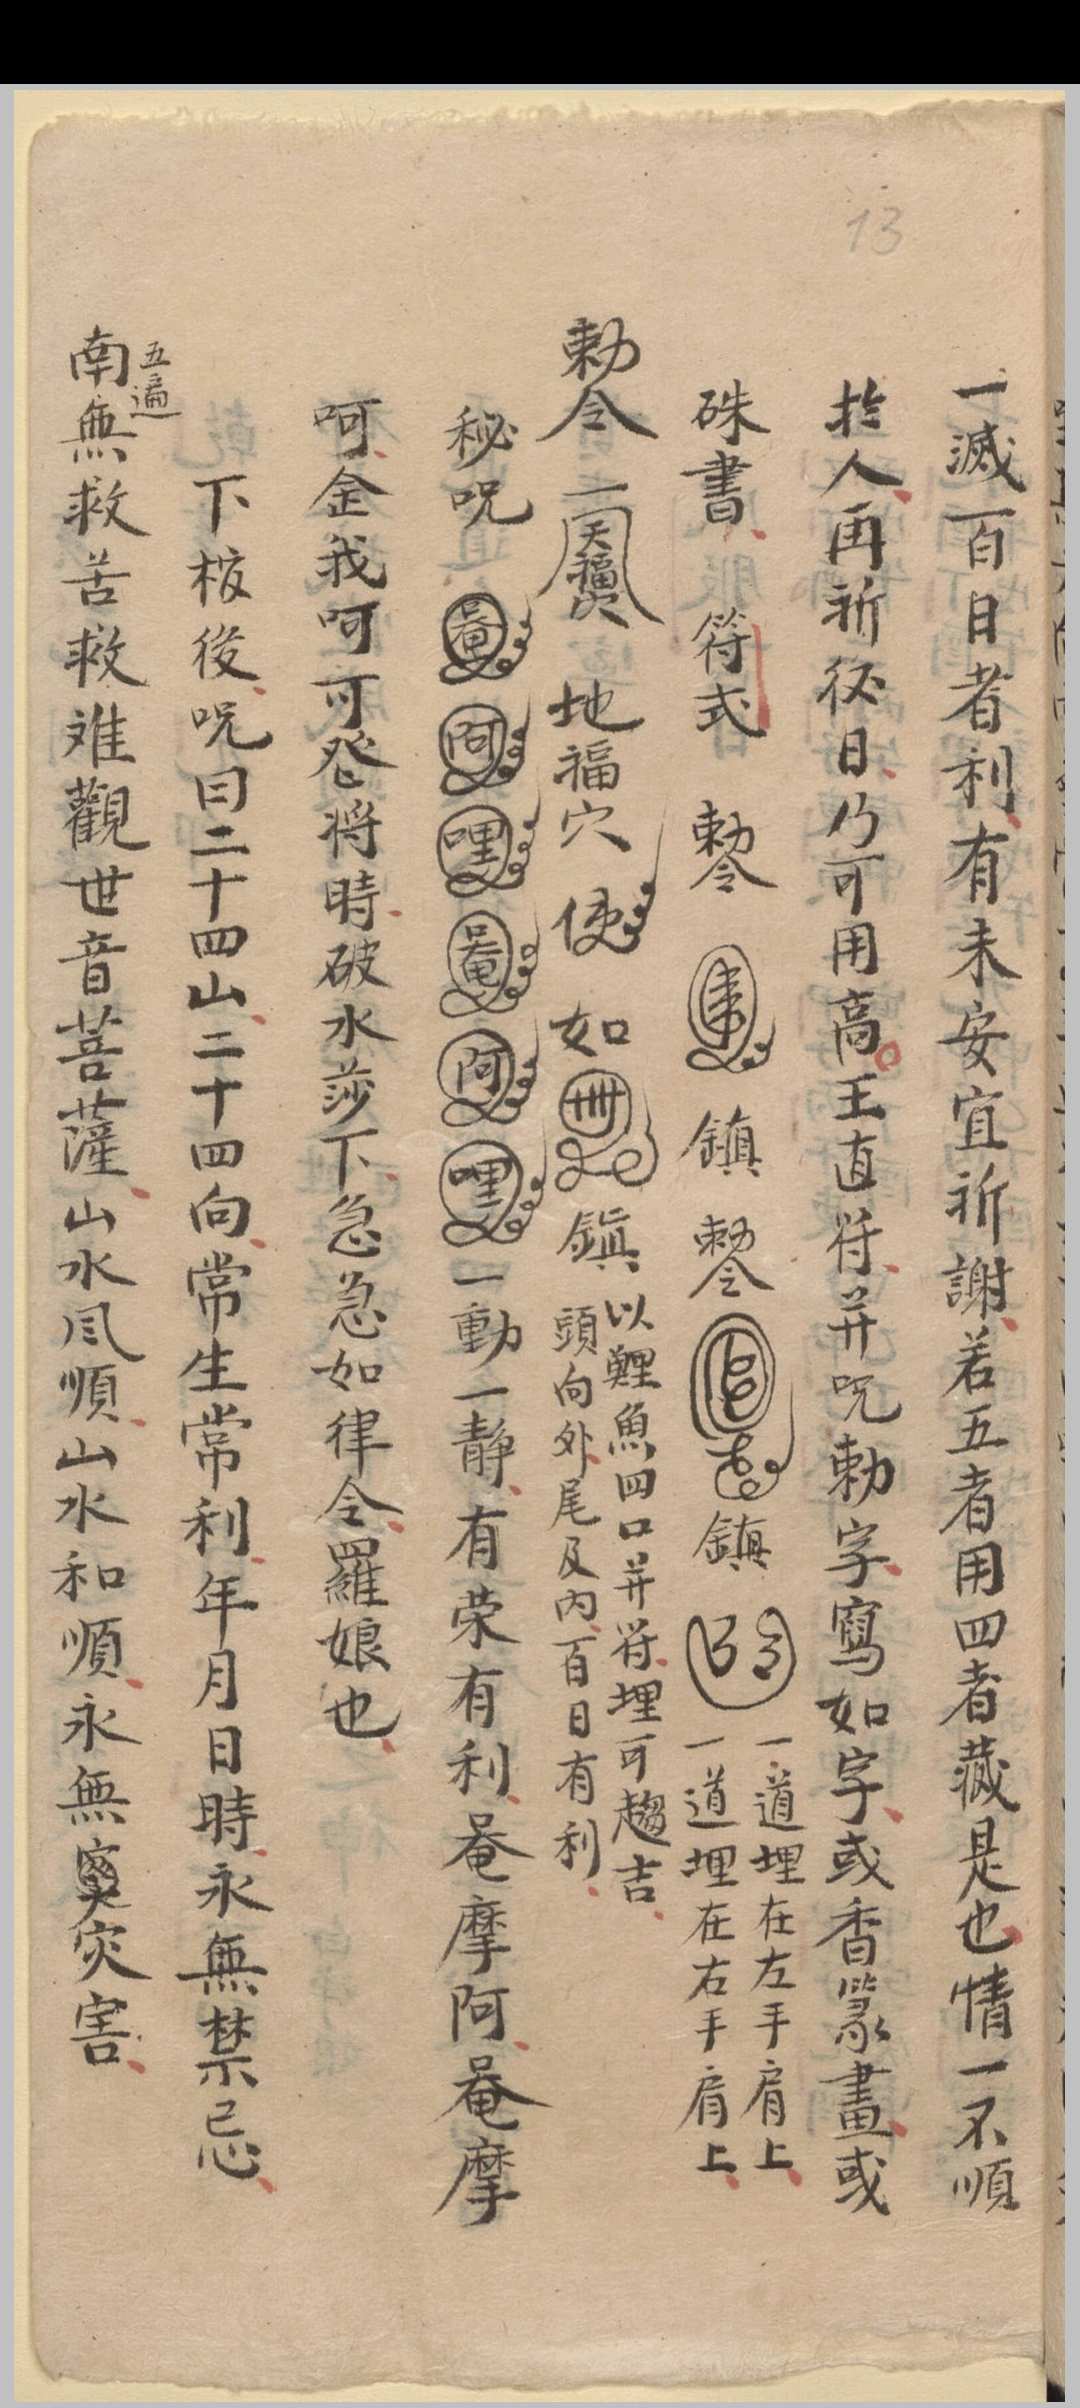 13
一滅一百日者利有未安宜祈謝若五者用四者藏是也情一不順
扵人再祈後日乃可用高王直符并呪勅字寫如字或香篆畫或
硃書 符式 勅令 鎮 勅令 鎮
一道埋在左手肩上
一道埋在右手肩上
勅令 地福穴 使 如 鎮
以鯉魚四口并符埋可趨吉
頭向外尾及内百日有利
秘呪 唵 阿 哩 唵 阿 哩 一動一静有荣有利唵摩阿唵摩
呵金我呵可發将時破水莎下急急如律令羅娘也
下桉後呪曰二十四山二十四向常生常利年月日時永無禁忌
五遍
南無救苦救难觀世音菩薩山水风順山水和順永無灾害